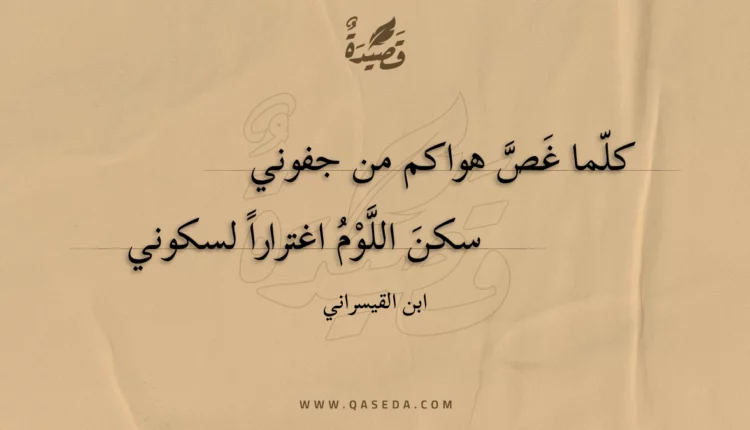 قَصِيْدَةٌ
كلّما غَصَّ هواكم من جفوني
سكنَ اللَّوْمُ اغتراراً لسكوني
ابن القيسراني
WWW.QASEDA.COM